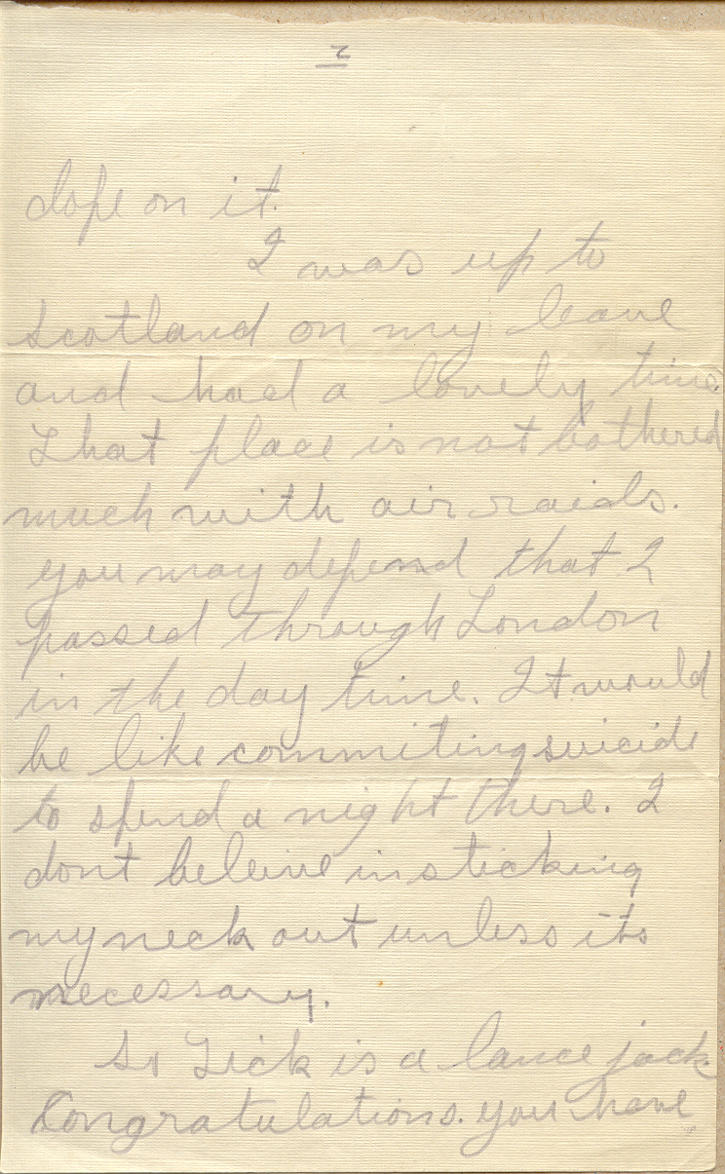 2
dope on it.
I was up to
Scotland on my leave
and had a lovely time.
That place is not bothered
much with air raids.
you may depend that I
passed through London
in the day time. It would
be like commiting suicide
to spend a night there. I
dont beleive in sticking
my neck out unless its
necessary.
So Tick is a lance jack
Congratulations. you have